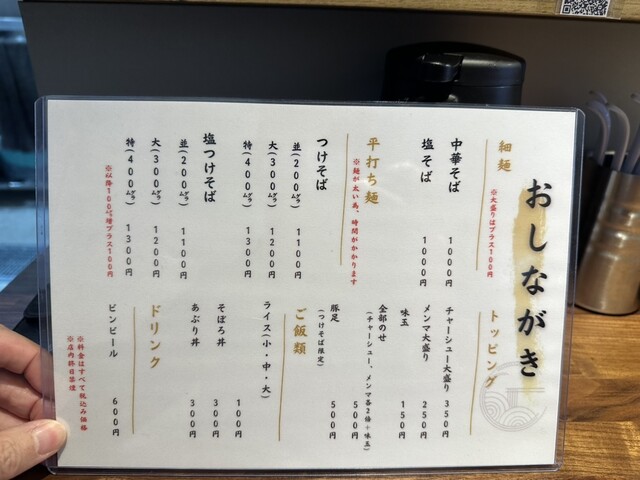 おしながき
細麺
※大盛りはプラス100円
中華そば 1000円
塩そば 1000円
平打ち麺
※麺が太い為、時間がかかります
つけそば
並(200㌘) 1100円
大(300㌘) 1200円
特(400㌘) 1300円
塩つけそば
並(200㌘) 1100円
大(300㌘) 1200円
特(400㌘) 1300円
※以降100㌘増プラス100円
トッピング
チャーシュー大盛り 350円
メンマ大盛り 250円
味玉 150円
全部のせ 500円
(チャーシュー、メンマ各2倍+味玉)
豚足 500円
(つけそば限定)
ご飯類
ライス(小・中・大) 100円
そぼろ丼 300円
あぶり丼 300円
ドリンク
ビンビール 600円
※料金はすべて税込み価格
※店内終日禁煙